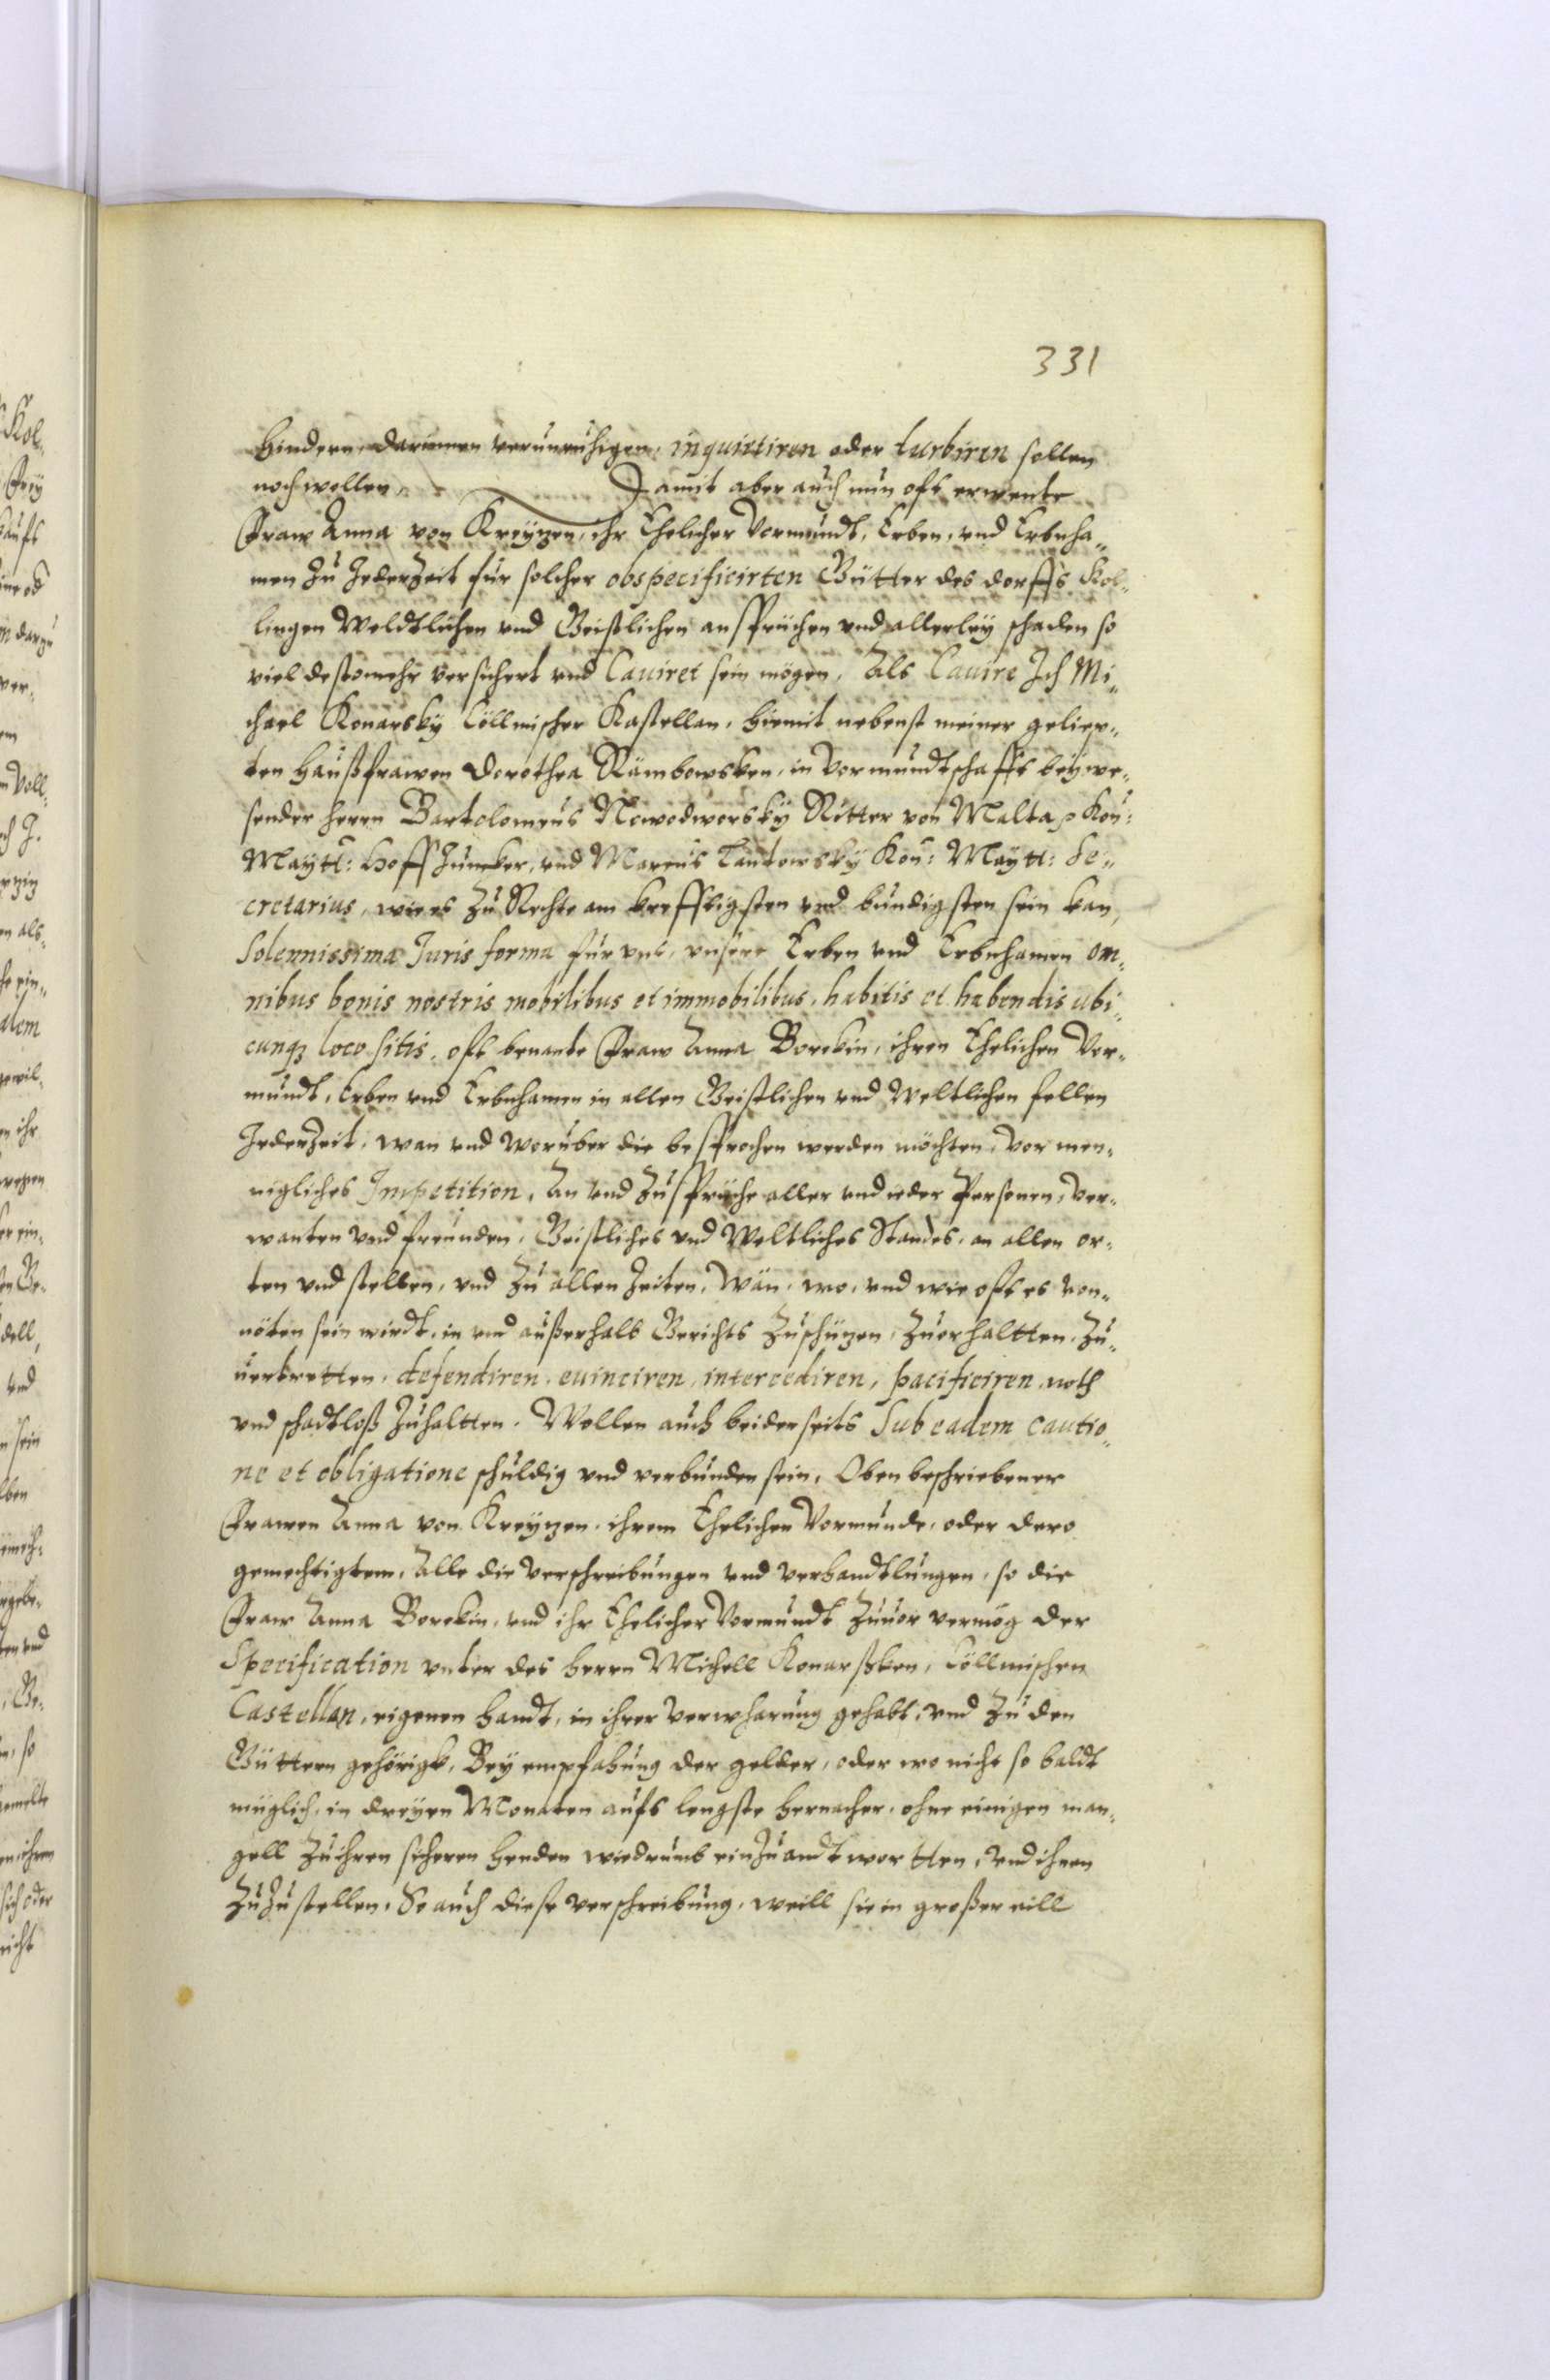 331
hindern, darinnen verunruhigen, inquietiren oder turbiren sollen
noch wollen. Damit aber auch nun oft erwente
Fraw Anna von Kreytzen, ihr Ehelicher Vormundt, Erben, und Erbneha„
men zu Jederzeit für solcher obspecificirten Gütter des dorffs Kol„
lingen Weldtlichen und Geistlichen ansprüchen und allerley schaden so
viel destomehr versichert und Caviret sein mögen, Als Cavire Ich Mi„
chael Konarsky Cöllmischer Kastellan, hiemit nebenst meiner geliep„
ten Haußfrawen Dorothea Rämbowsken, in Vormundtschafft beywe„
sender Herrn Bartolomeus Nowodworsky Ritter von Malta Kön:
Maytt: Hoff Juncker, und Marcus Lantowsky Kön: Maytt: Se„
cretarius, wie es zu Rechte am krefftigsten und bundigsten sein kan,
Solennissima Juris forma für uns, unsere Erben und Erbnehamen om„
nibus bonis nostris mobilibus et immobilibus, habitis et habendis ubi„
cunqz loco sitis, oft benante Fraw Anna Borckin, ihren Ehelichen Vor„
mundt, Erben und Erbnehamen in allen Geistlichen und Weltlichen fellen
Jederzeit, wan und worüber die besprochen werden möchten, vor men„
nigliches Impetition, An und Zusprüche aller und ieder Personen, Ver„
wanten und freunden, Geistliches und Weltliches Standes, an allen or„
ten und stellen, und zu allen Zeiten, Wän, wo, und wie oft es von„
nöten sein wirdt, in und außerhalb Gerichts Zuschützen, Zuerhaltten, Zu„
uertretten, defendiren, evinciren, intercediren, pacificiren, noth
und schadtloß Zuhaltten. Wollen auch beiderseits Sub eadem cautio„
ne et obligatione schuldig und verbunden sein, Oben beschriebener
Frawen Anna von Kreytzen, ihrem Ehelichen Vormunde, oder dero
gemechtigtem, Alle die Verschreibungen und Verhandtlungen, so die
Fraw Anna Borckin, und ihr Ehelicher Vormundt Zuuor vermög der
Specification unter des Herrn Michell Konarßken, Cöllmischen
Castellan, eigenen handt, in ihrer Verwharung gehabt, und Zu den
Güttern gehörigk, Bey empfahung der gelder, oder wo nicht so baldt
müglich, in dreyen Monaten aufs lengste hernacher, ohne einigen man„
gell Zu ihren sicheren henden wiedrumb einzuandtwortten, und ihnen
Zuzustellen, So auch diese verschreibung, weill sie in großer eill